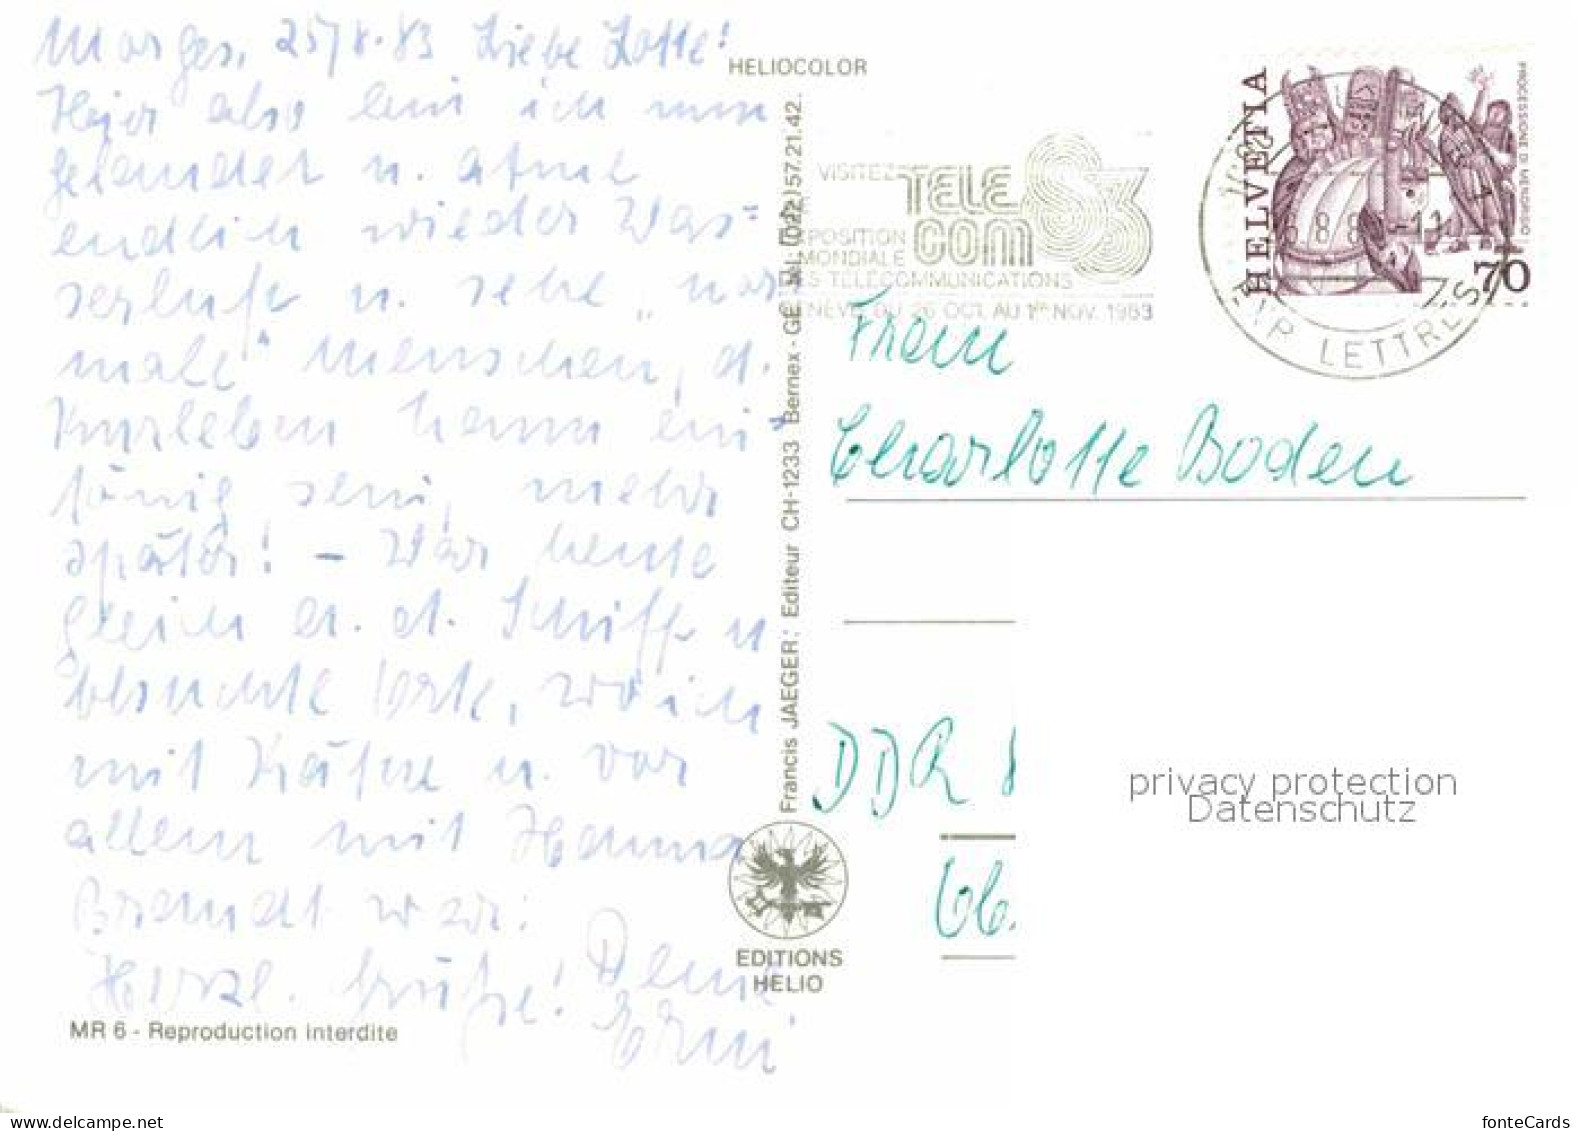 Morges, 25/8.83 Liebe Lotte!
Hier also bin ich nun
gelandet u. atme
endlich wieder Was-
serluft u. sehe „nor
male" Menschen, d.
Kurleben kann ein-
tönig sein, mehr
später! - War heute
gleich a. d. Schiff u
besuchte Orte, wo ich
mit Käthe u. vor
allem mit Hanna
Brandt war.
Herzl. Grüße! Deine
Erni
MR 6 - Reproduction interdite
HELIOCOLOR
Francis JAEGER; Editeur CH-1233 Bernex - GE (022) 57.21.42.
EDITIONS
HELIO
VISITEZ TELECOM 83
EXPOSITION
MONDIALE
DES TÉLÉCOMMUNICATIONS
GENÈVE DU 26 OCT. AU 1er NOV. 1983
HELVETIA
PROCESSIONE DI MENDRISIO
70
EXP LETTRES
Frau
Charlotte Boden
DDR 8
privacy protection
Datenschutz
fonteCards
www.delcampe.net